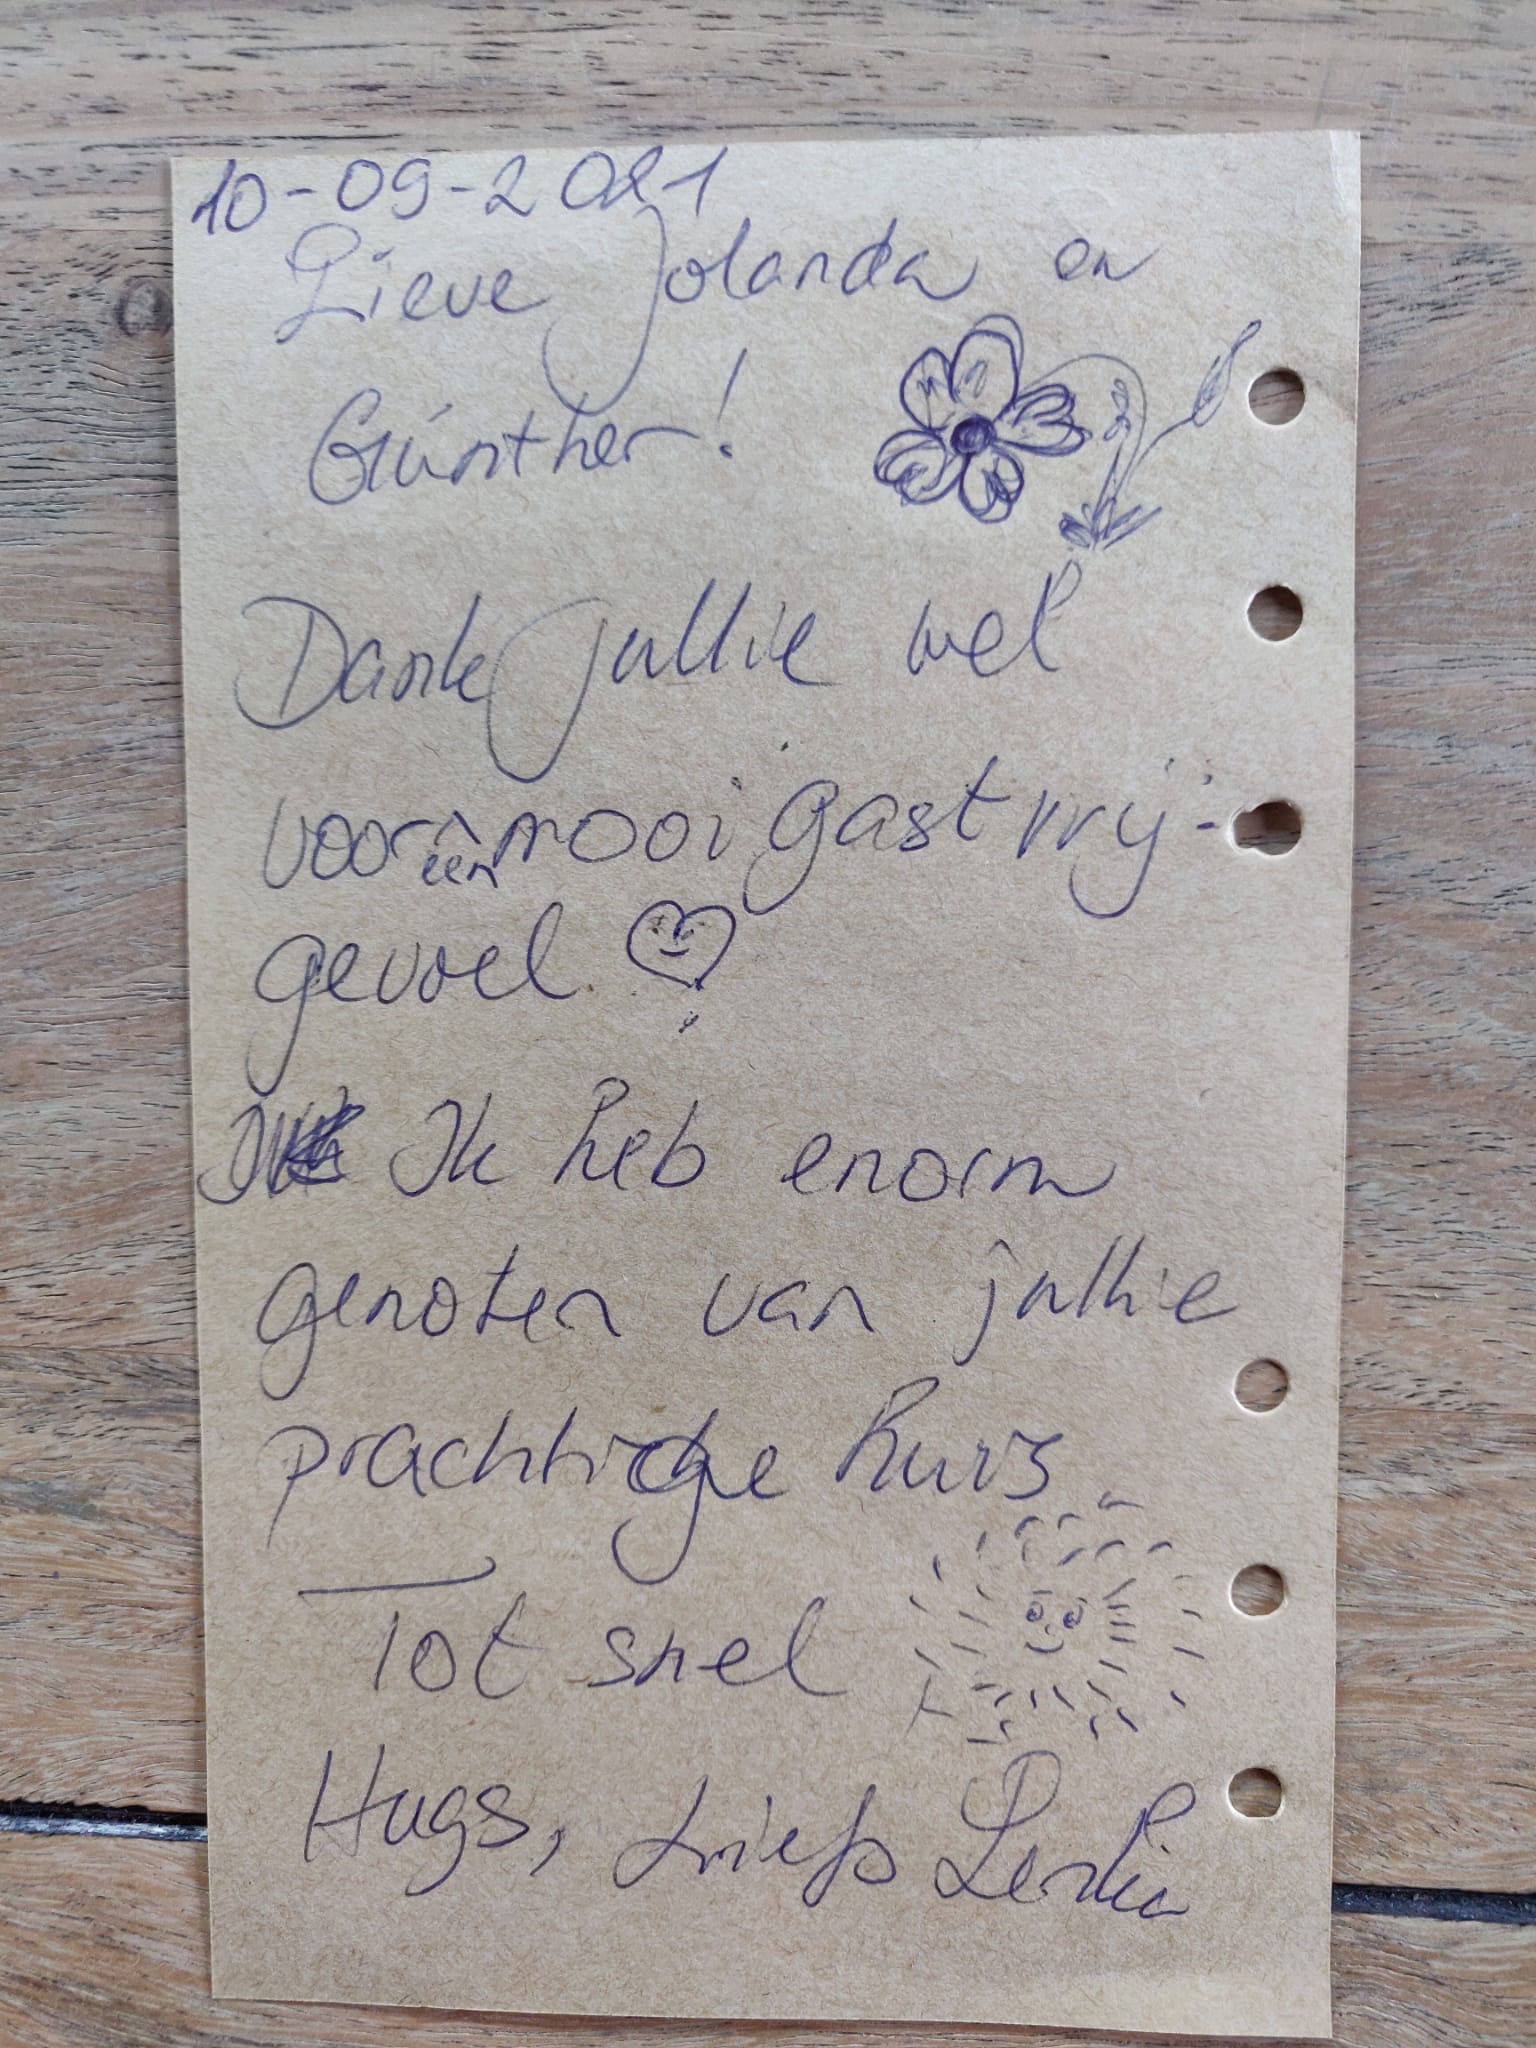 10-09-2021
Lieve Jolanda en
Günther!
Dank jullie wel
voor een mooi gastvrij-
gevoel
Ik Ik heb enorm
genoten van jullie
prachtige huis
Tot snel
Hugs, Liefs